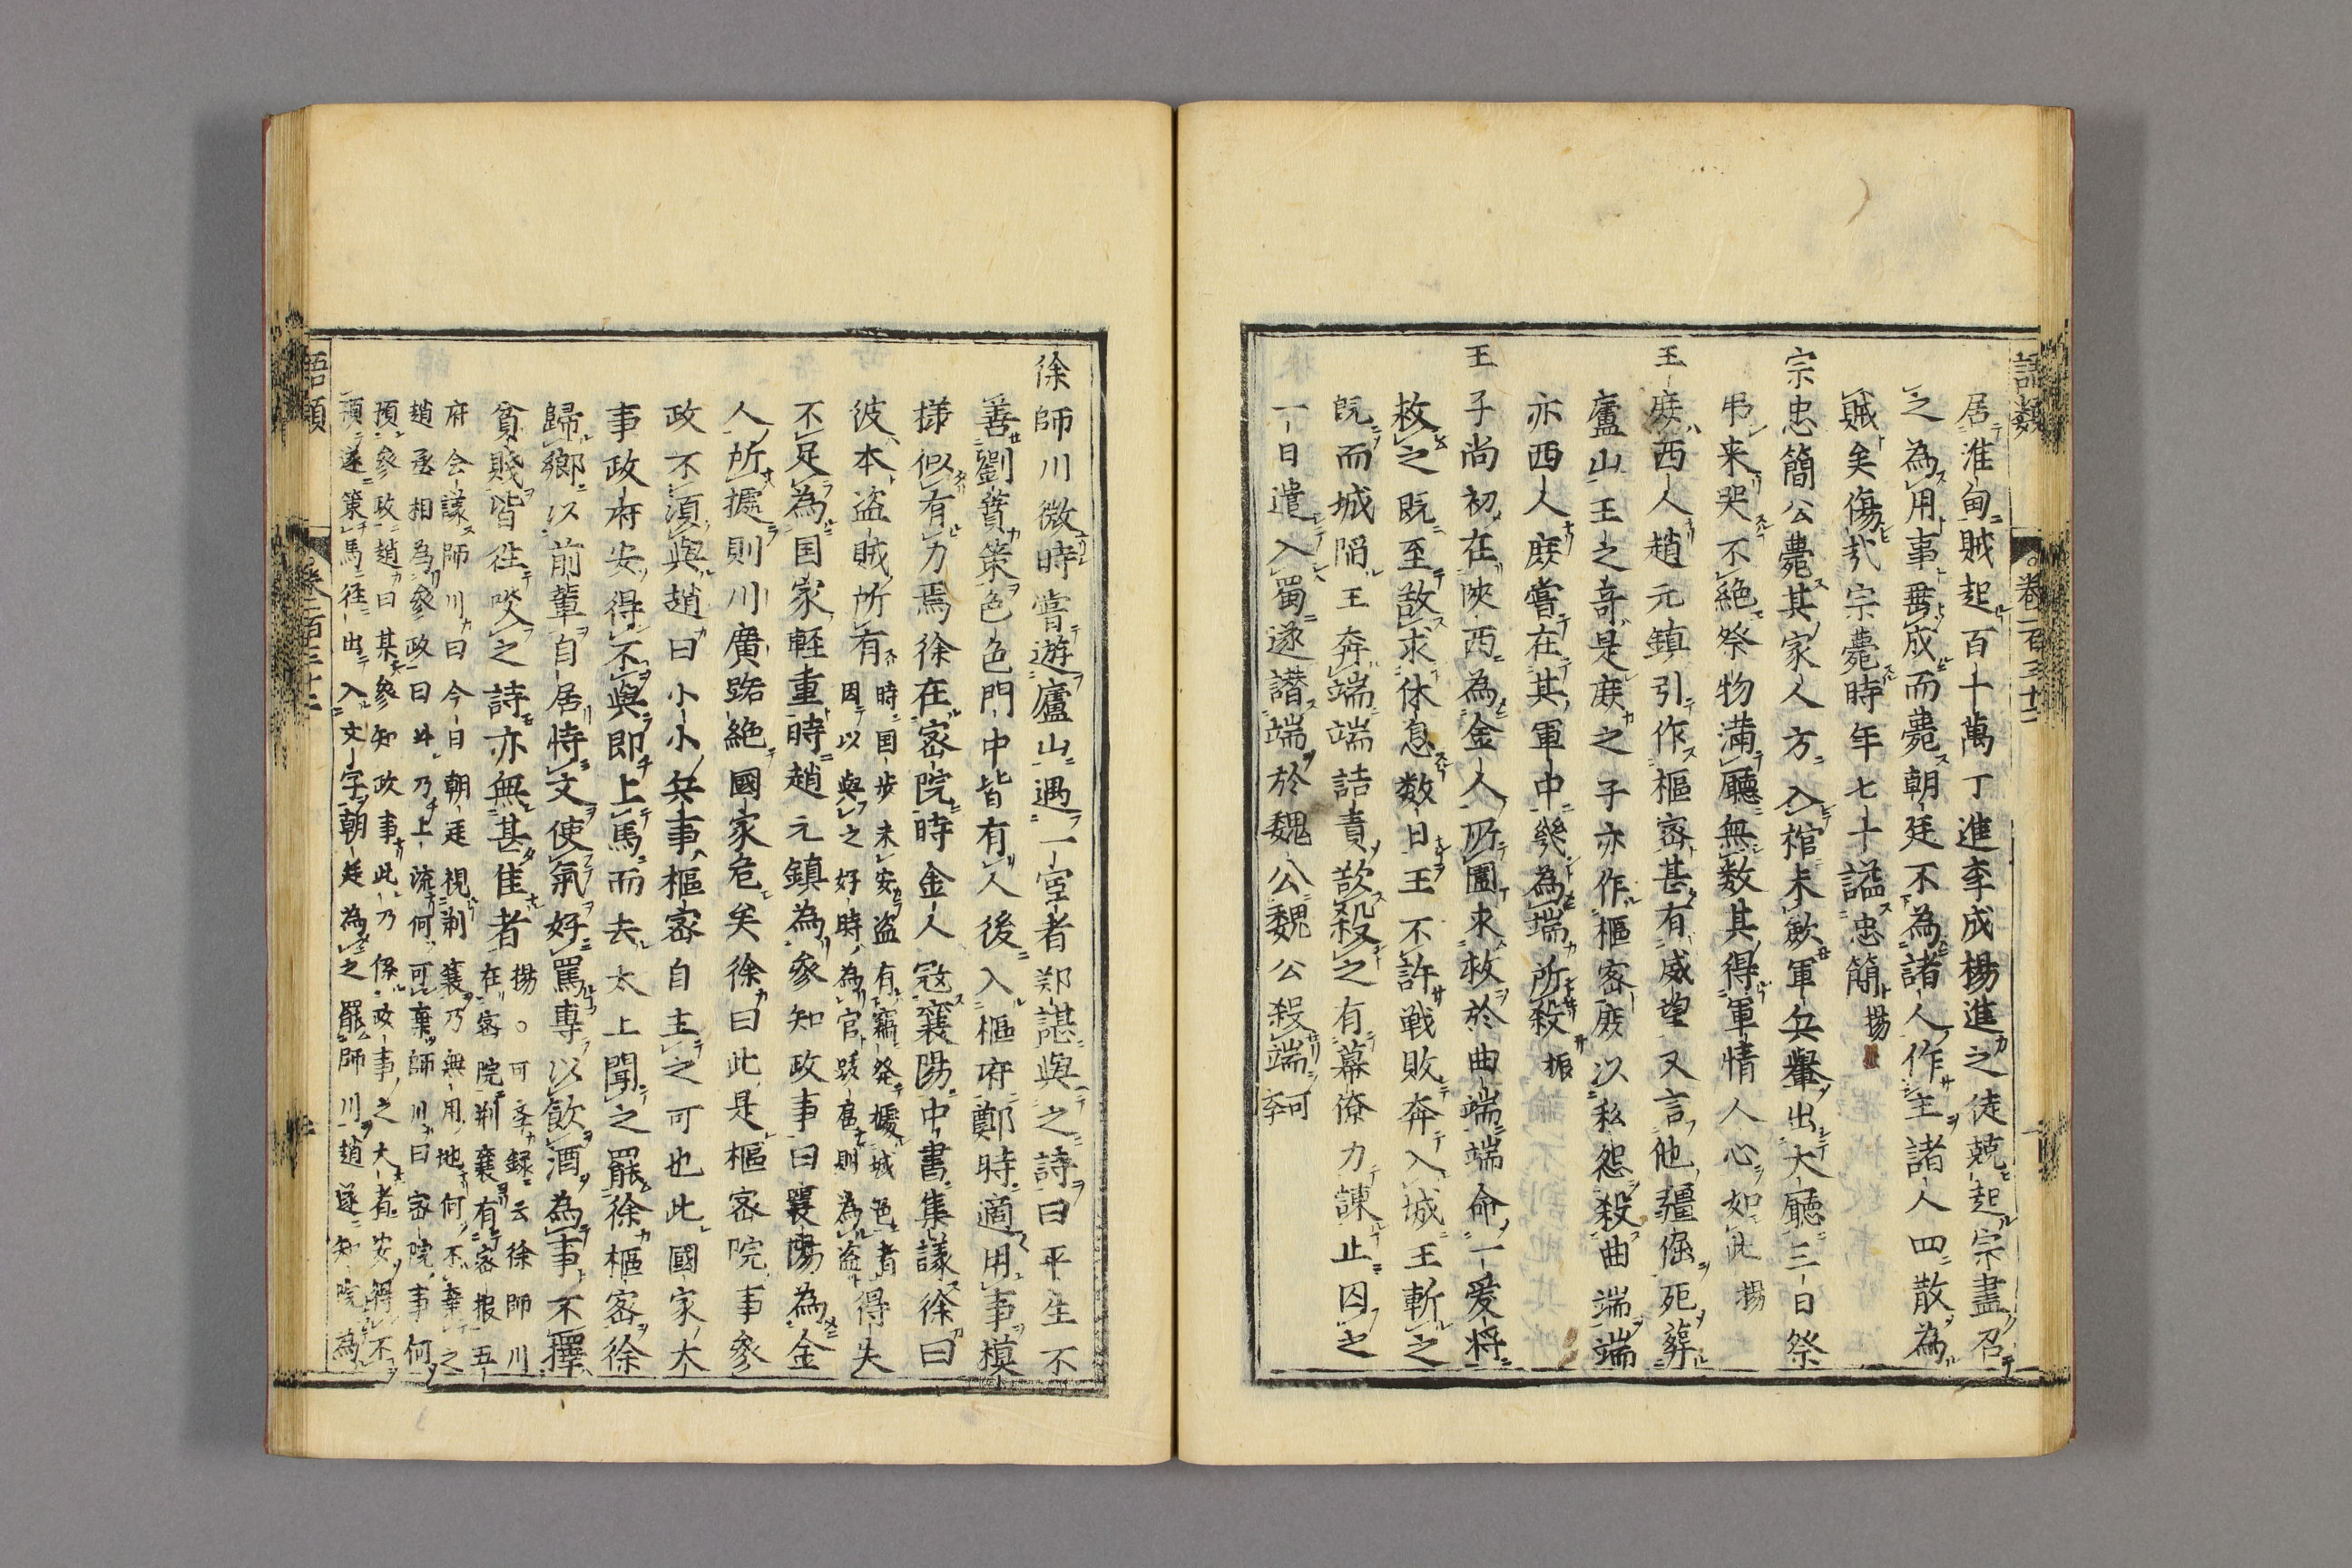 語類 卷一百三十二
居淮甸賊起百十萬丁進李成楊進之徒競起宗盡召
之為用事垂成而薨朝廷不為諸人作主諸人四散為
賊矣傷哉宗薨時年七十諡忠簡揚
宗忠簡公薨其家人方入棺未歛軍兵轝出大廳三日祭
弔来哭不絶祭物滿廳無数其得軍情人心如此揚
王庶西人趙元鎮引作樞宻甚有威望又言他疆倔死葬
廬山王之奇是庶之子亦作樞宻庶以私怨殺曲端端
亦西人庶嘗在其軍中幾為端所殺振
王子尚初在陝西為金人所圍来救於曲端端命一爱将
救之既至故求休息数日王不許戦敗奔入城王斬之
既而城陷王奔端端詰責欲殺之有幕僚力諌止囚之
一日遣入蜀遂譖端於魏公魏公殺端可李
徐師川微時嘗遊廬山遇一宦者郑諶與之詩曰平生不
善劉蕡策色色門中皆有人後入樞府鄭時適用事模
様似有力焉徐在宻院時金人宼襄陽中書集議徐曰
彼本盗賊所有時国歩未安盗有竊發據城邑者得失
因以與之好時為官跋扈則為盗
不足為国家輕重時趙元鎮為參知政事曰襄陽為金
人所據則川廣路絶國家危矣徐曰此是樞宻院事參
政不須與趙曰小小兵事樞宻自主之可也此國家大
事政府安得不與即上馬而去太上聞之罷徐樞宻徐
歸鄉以前輩自居恃文使氣好罵專以飲酒為事不擇
貧賤皆徃啖之詩亦無甚佳者揚○可李録云徐師川
在宻院荆襄有宻报五
府会議師川曰今日朝廷視荆襄乃無用地何不棄之
趙丞相為參政曰此乃上流何可棄師川曰宻院事何
預參政趙曰某參知政事此乃係政事之大者安得不
預遂策馬徃出入文字朝廷為之罷師川趙遂知院為
語類 卷一百三十二